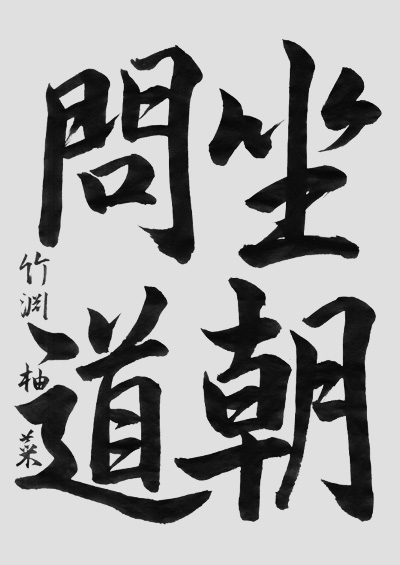 坐朝
問道
竹渕柚菜